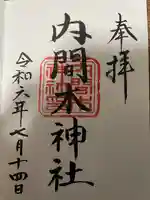 奉拝
内間木神社
令和六年七月十四日